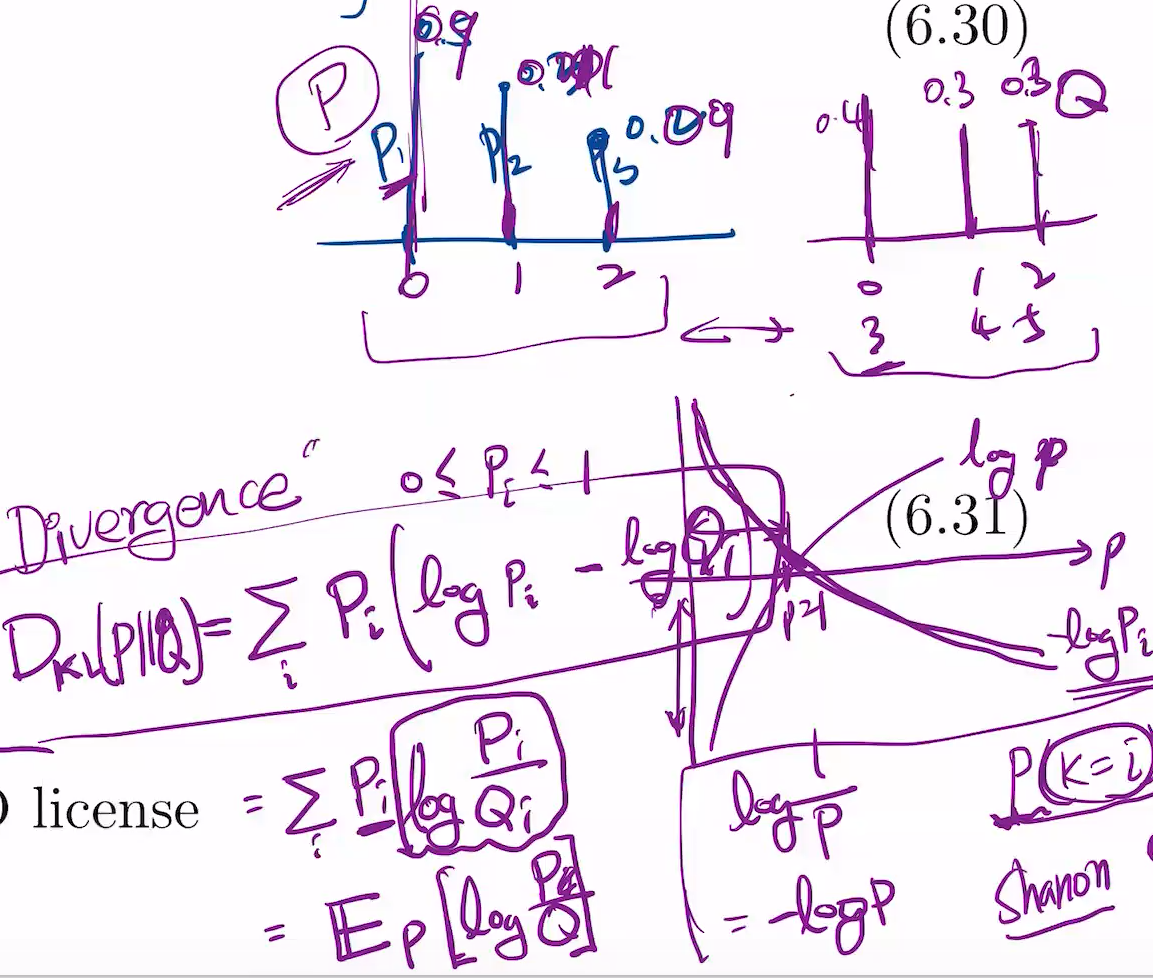 (6.30)
0.9
P
P₁ P₂
0.3 0.3 Q
0.4
0 1 2
0 1 2
3 4 5
Divergence"
0 ≤ Pᵢ ≤ 1
log P
(6.31)
P
D_KL(P||Q) = ∑ᵢ Pᵢ (log Pᵢ - log Qᵢ)
-log Pᵢ
license
= ∑ᵢ Pᵢ log Pᵢ/Qᵢ
log 1/P
P(K=i)
= E_P [log P/Q]
= -log P
Shanon